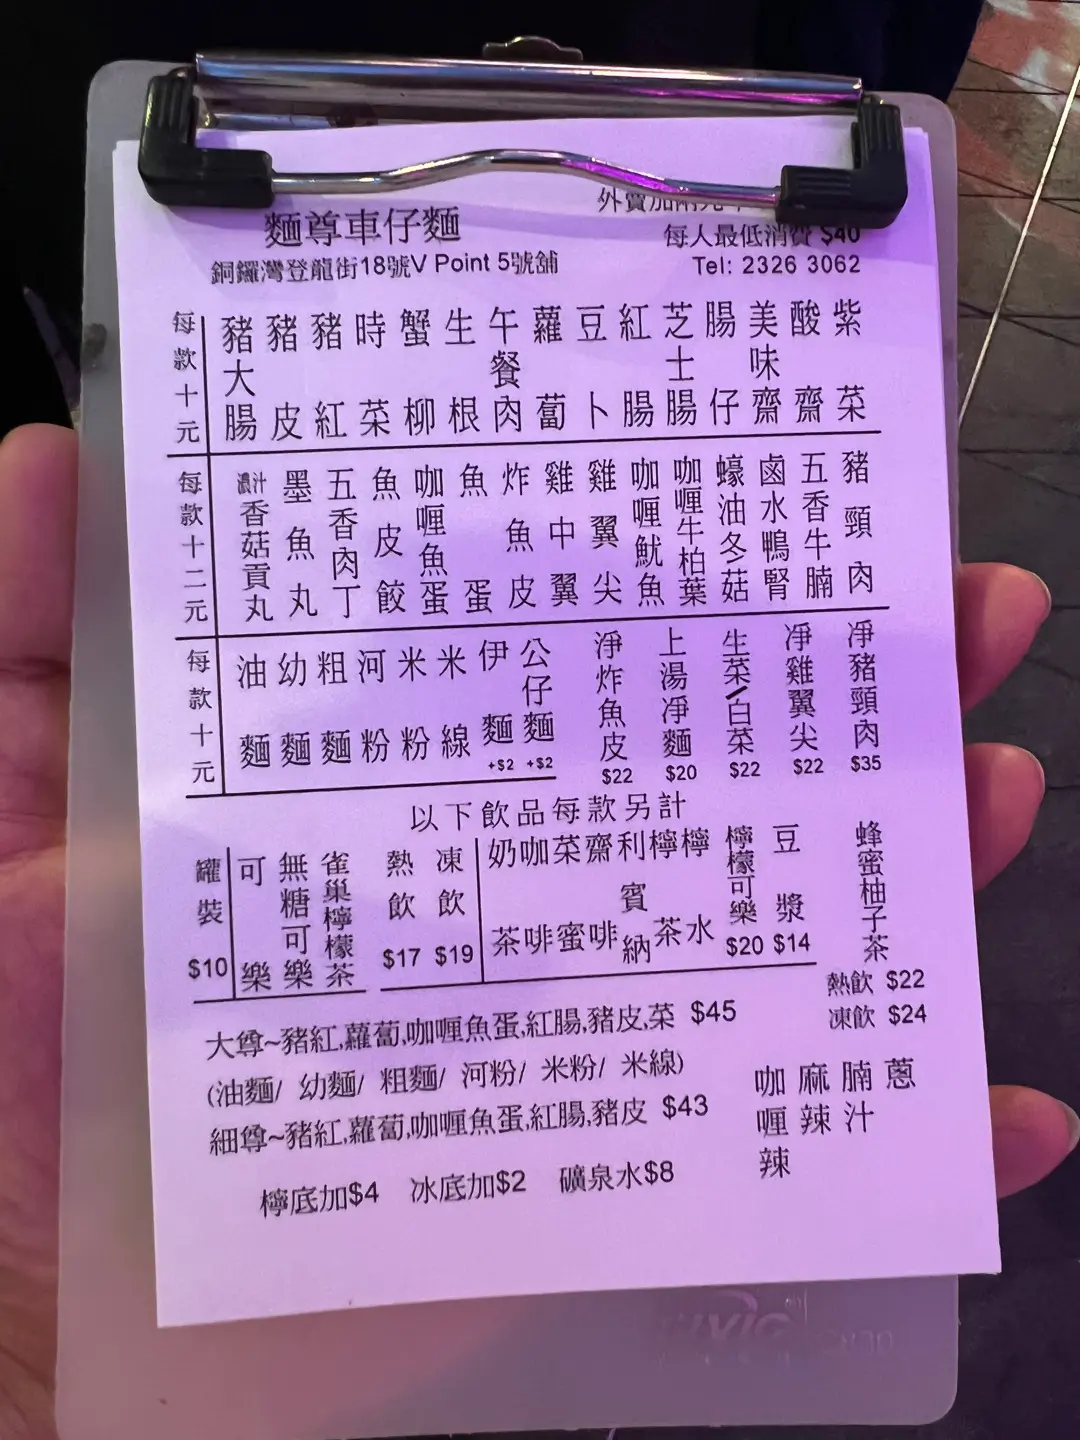 外賣加兩元
麵尊車仔麵
每人最低消費 $40
銅鑼灣登龍街18號V Point 5號舖
Tel: 2326 3062
每款十元
豬大腸
豬皮
豬紅
時菜
蟹柳
生根
午餐肉
蘿蔔
豆卜
紅腸
芝士腸
腸仔
美味齋
酸齋
紫菜
每款十二元
濃汁香菇貢丸
墨魚丸
五香肉丁
魚皮餃
咖喱魚蛋
魚蛋
炸魚皮
雞中翼
雞翼尖
咖喱魷魚
咖喱牛柏葉
蠔油冬菇
鹵水鴨腎
五香牛腩
豬頸肉
每款十元
油麵
幼麵
粗麵
河粉
米粉
米線
伊麵 +$2
公仔麵 +$2
淨炸魚皮 $22
上湯淨麵 $20
生菜/白菜 $22
淨雞翼尖 $22
淨豬頸肉 $35
以下飲品每款另計
罐裝 $10
可樂
無糖可樂
雀巢檸檬茶
熱飲 $17
凍飲 $19
奶茶
咖啡
菜蜜
齋啡
利賓納
檸茶
檸水
檸檬可樂 $20
豆漿 $14
蜂蜜柚子茶
熱飲 $22
凍飲 $24
大尊~豬紅,蘿蔔,咖喱魚蛋,紅腸,豬皮,菜 $45
(油麵/ 幼麵/ 粗麵/ 河粉/ 米粉/ 米線)
細尊~豬紅,蘿蔔,咖喱魚蛋,紅腸,豬皮 $43
咖喱辣
麻辣
腩汁
蔥
檸底加$4 冰底加$2 礦泉水$8